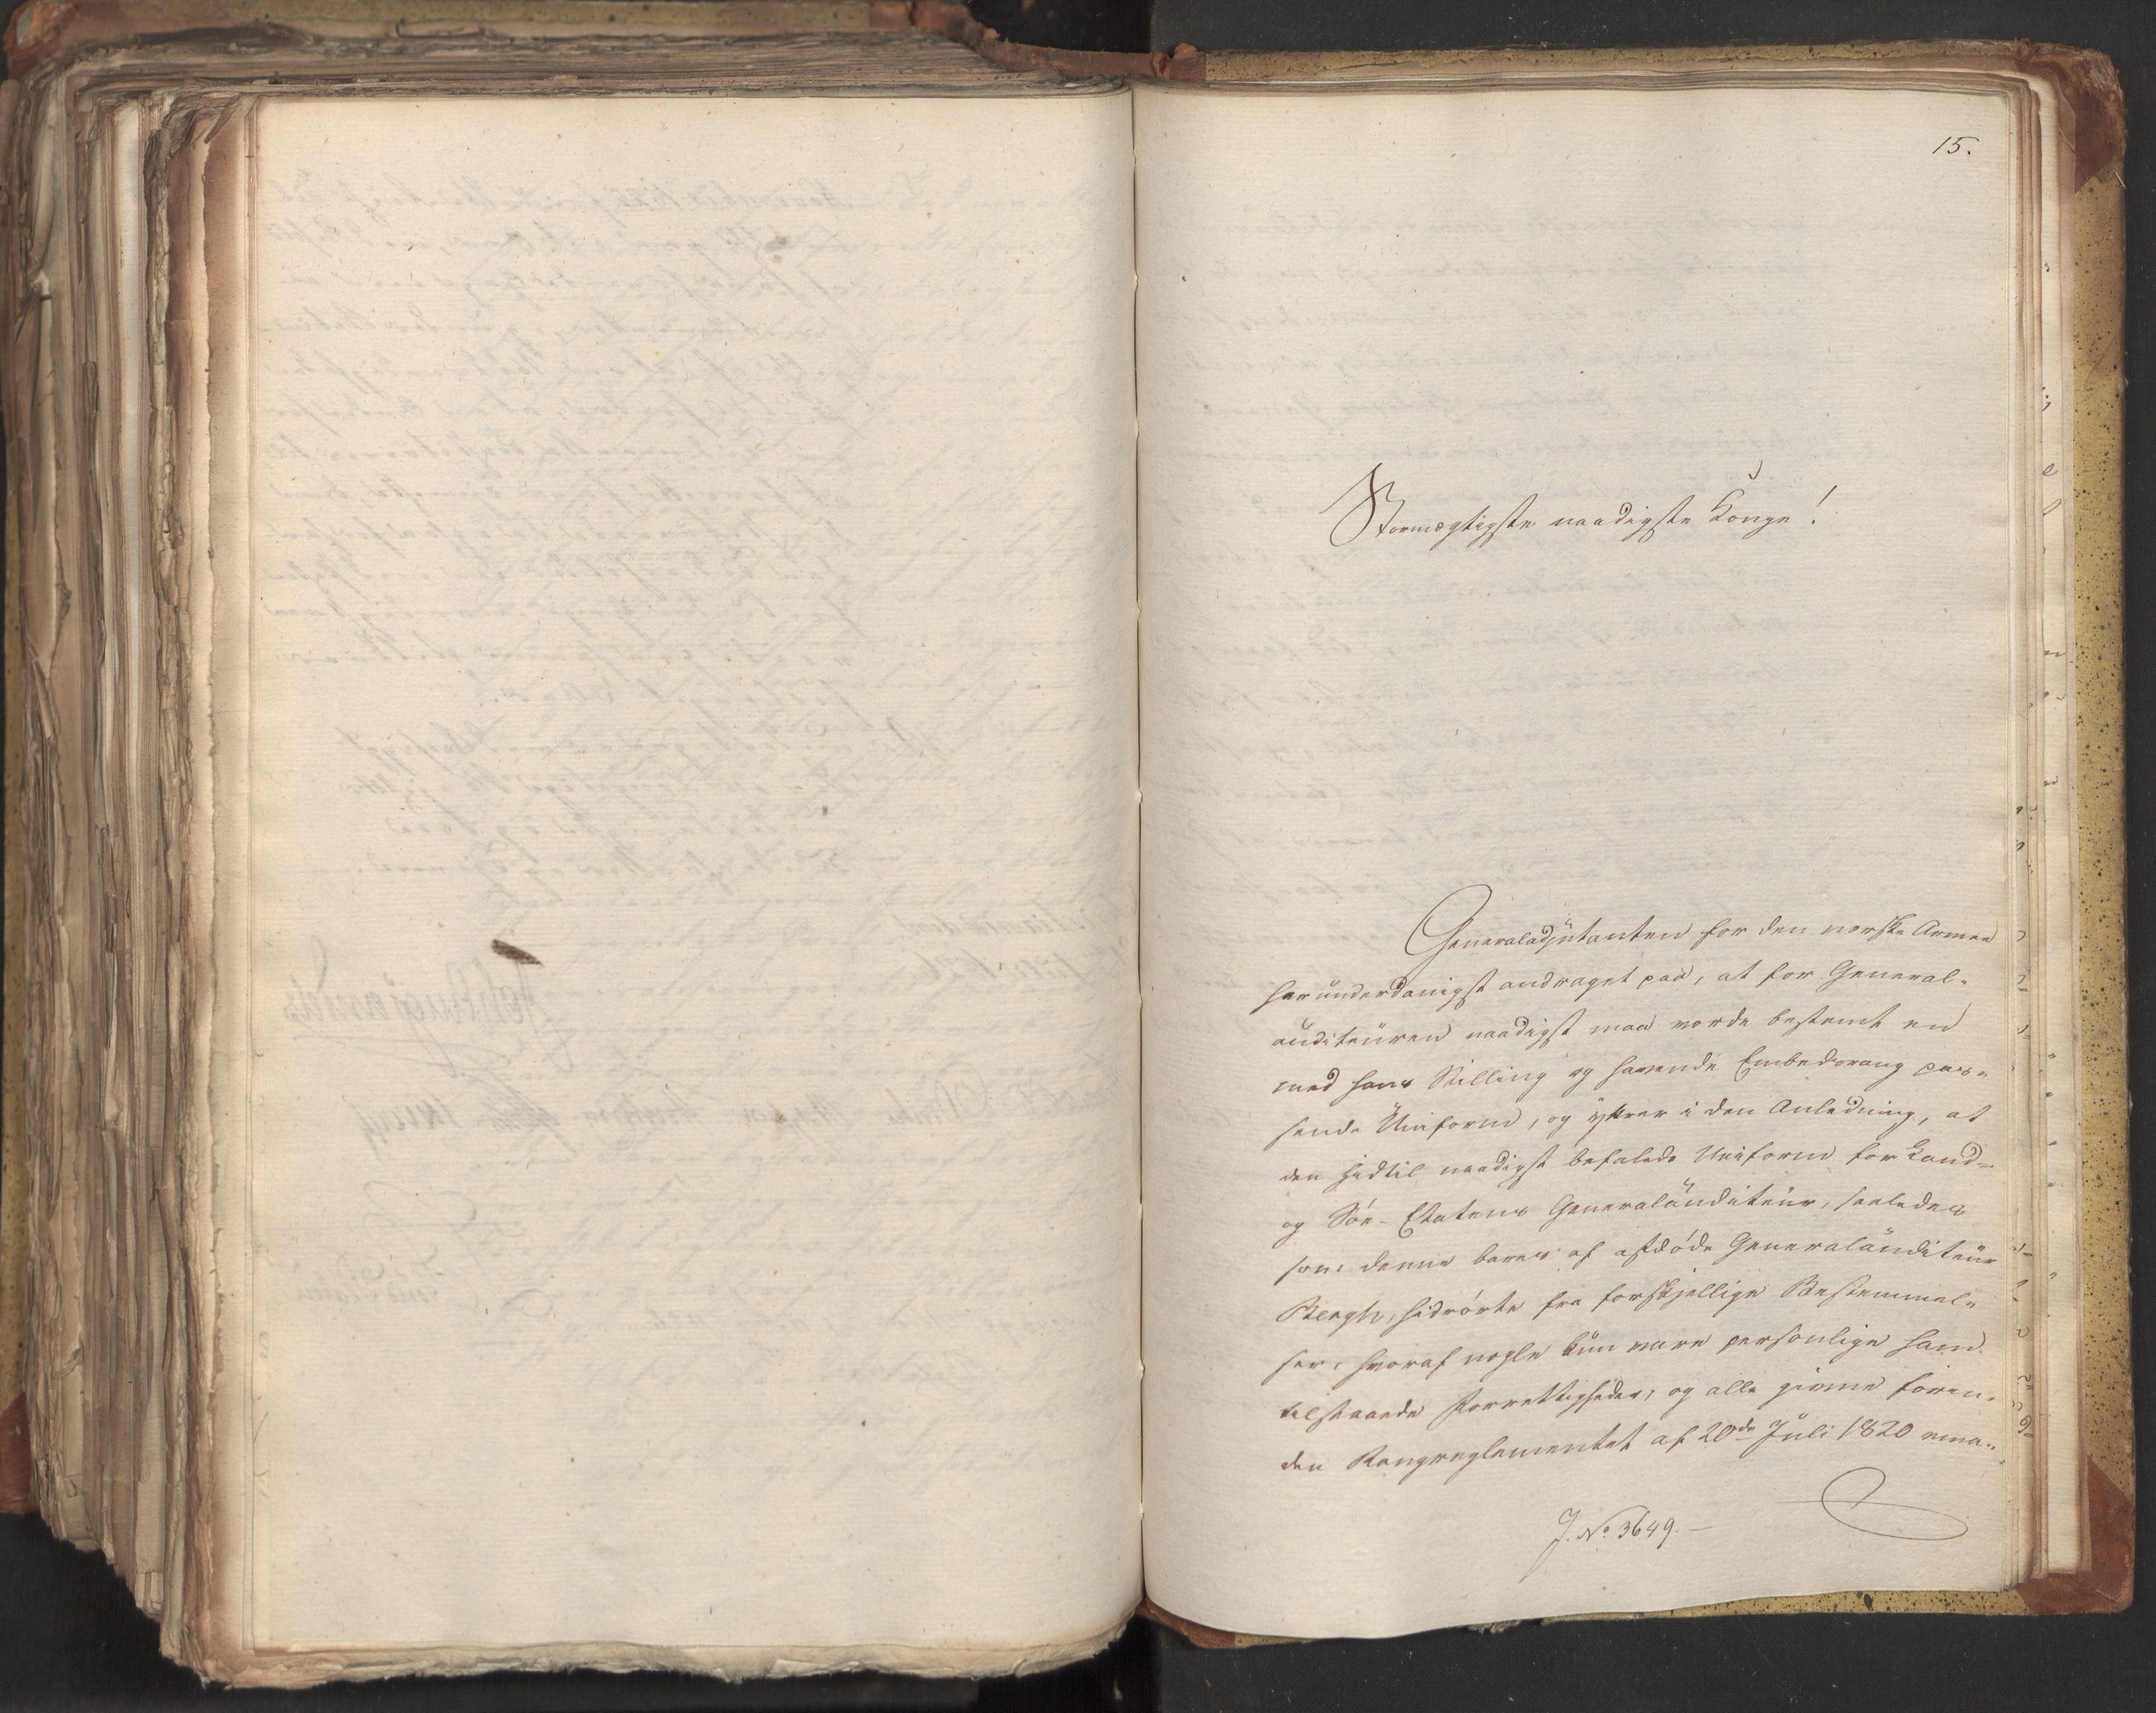 15.
Stormægtigste naadigste Konge!
Generaladjutanten for den norske Armee
har underdanigst andraget paa, at for General-
auditeuren naadigst maa vorde bestemt en
med hans Stilling og havende Embedsrang pas-
sende Uniform, og yttrer i den Anledning, at
den hidtil naadigst befalede Uniform for Land-
og Söe-Etatens Generalauditeur, saaledes
som denne bares af afdöde Generalauditeur
Bergh, hidrörte fra forskjellige Bestemmel-
ser, hvoraf nogle kun vare personlige ham
tilstaaede Forrettigheder, og alle givne foren-
den Rangreglementet af 20de Juli 1820 ema-
J. No 3649.-